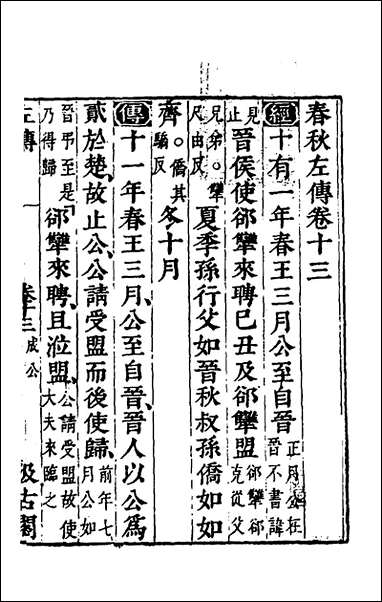 春秋左傳卷十三
經十有一年春王三月公至自晉正月公在晉不書諱
見止晉侯使郤犨來聘巳丑及郤犨盟郤犨郤克從父
兄弟。犨尺由反夏季孫行父如晉秋叔孫僑如如
齊。僑其驕反冬十月
傳十一年春王三月、公至自晉、晉人以公爲
貳於楚、故止公、公請受盟而後使歸、前年七月公如
晉弔至是乃得歸郤犨來聘、且涖盟、公請受盟故使大夫來臨之
左傳 卷十三 成公 汲古閣